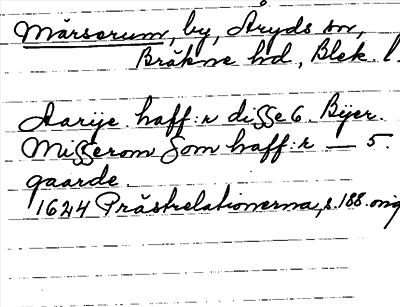 Mårserum, by, Åryds sn,
Bräkne hd, Blek. l.
Aarije. haff:r disse 6. Bÿer.
Misserom som haff:r — 5.
gaarde.
1624 Prästrelationerna, s. 188. orig